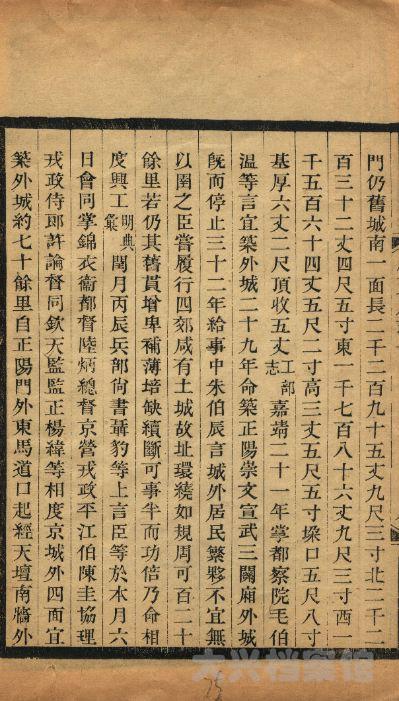 門仍舊城南一面長二千二百九十五丈九尺三寸北二千二
百三十二丈四尺五寸東一千七百八十六丈九尺三寸西一
千五百六十四丈五尺二寸高三丈五尺五寸垜口五尺八寸
基厚六丈二尺頂收五丈工部志嘉靖二十一年掌都察院毛伯
溫等言宜築外城二十九年命築正陽崇文宣武三關廂外城
旣而停止三十二年給事中朱伯辰言城外居民繁夥不宜無
以圉之臣嘗履行四郊咸有土城故址環繞如規周可百二十
餘里若仍其舊貫增卑補薄培缺續斷可事半而功倍乃命相
度興工明典彙閏月丙辰兵部尙書聶豹等上言臣等於本月六
日會同掌錦衣衞都督陸炳總督京營戎政平江伯陳圭協理
戎政侍郎許論督同欽天監監正楊緯等相度京城外四面宜
築外城約七十餘里自正陽門外東馬道口起經天壇南牆外
大兴档案馆
75